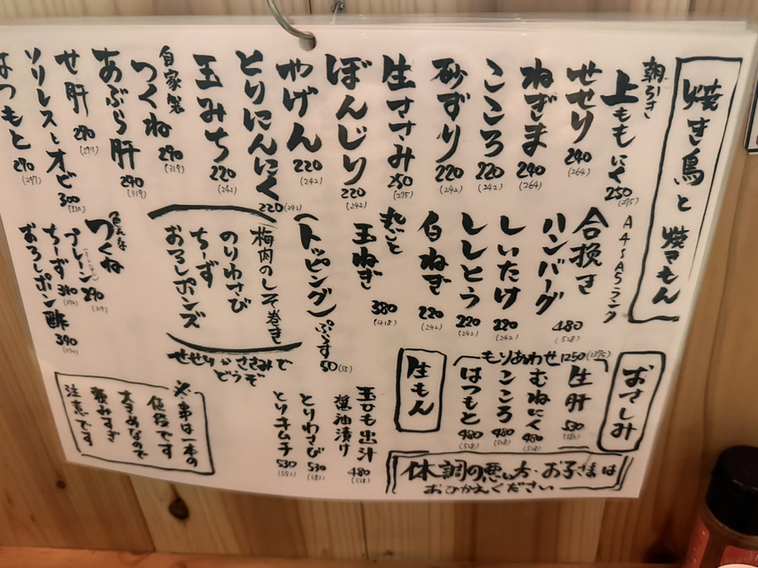 焼き鳥と焼きもん
朝引き
上ももにく 250 (275)
せせり 240 (264)
ねぎま 240 (264)
こころ 220 (242)
砂ずり 220 (242)
生ささみ 250 (275)
ぼんじり 220 (242)
やげん 220 (242)
とりにんにく 220 (242)
玉みち 220 (242)
自家製
つくね 290 (319)
あぶら肝 290 (319)
せ肝 270 (297)
ソリレスとオビ 300 (330)
はつもと 270 (297)
合挽き
ハンバーグ 480 (528)
しいたけ 220 (242)
ししとう 220 (242)
白ねぎ 220 (242)
丸ごと
玉ねぎ 380 (418)
(トッピング) ぷらす50 (55)
梅肉のしそ巻き
のりわさび
ちーず
おろしポンズ
せせりかささみで
どうぞ
つくね
プレーン 290 (319)
ちーず 340
おろしポン酢 340
おさしみ
もりあわせ 1250 (1375)
生肝
むねにく 480
こころ 480 (528)
はつもと 480 (528)
生もん
玉ひも出汁
醤油漬け 480 (528)
とりわさび 530 (583)
とりキムチ 530 (583)
休調の悪い方・お子さまは
おひかえください
※串は一本の
値段です
大きめなので
頼みすぎ
注意です